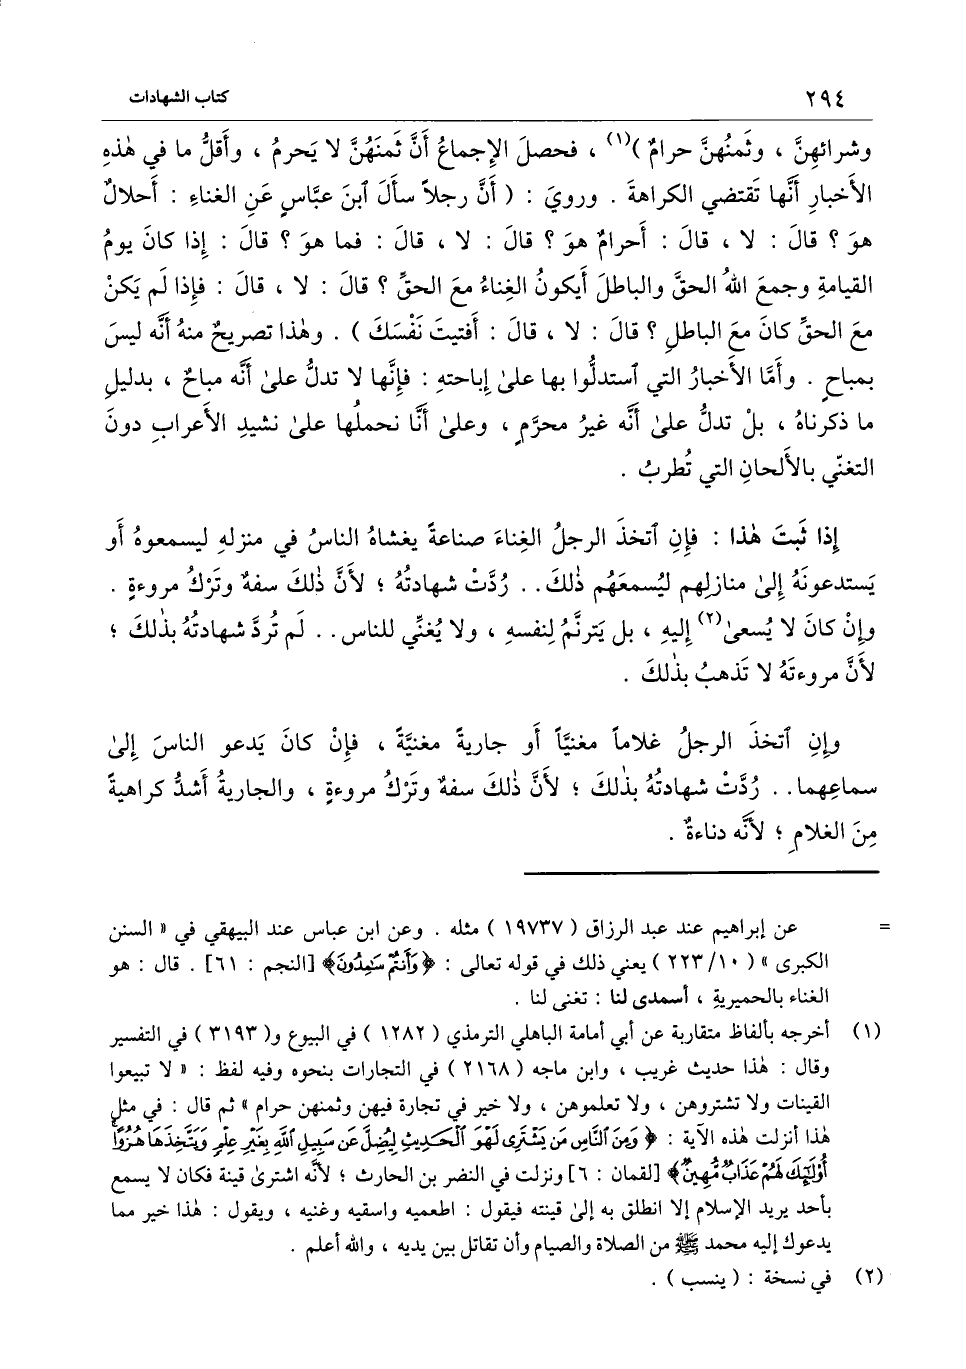 ٢٩٤ كتاب الشهادات
وشرائهِنَّ ، وثمنُهنَّ حرامٌ )(١) ، فحصلَ الإِجماعُ أَنَّ ثمنَهُنَّ لا يَحرمُ ، وأَقلُّ ما في هٰذهِ
الأَخبارِ أَنَّها تَقتضي الكراهةَ . ورويَ : ( أَنَّ رجلاً سأَلَ ٱبنَ عبَّاسٍ عَنِ الغناءِ : أَحلالٌ
هوَ ؟ قالَ : لا ، قالَ : أَحرامٌ هوَ ؟ قالَ : لا ، قالَ : فما هوَ ؟ قالَ : إِذا كانَ يومُ
القيامةِ وجمعَ اللهُ الحقَّ والباطلَ أَيكونُ الغِناءُ معَ الحقِّ ؟ قالَ : لا ، قالَ : فإِذا لَم يَكنْ
معَ الحقِّ كانَ معَ الباطلِ ؟ قالَ : لا ، قالَ : أَفتيتَ نَفْسَكَ ) . وهٰذا تصريحٌ منهُ أَنَّه ليسَ
بمباحٍ . وأَمَّا الأَخبارُ التي ٱستدلُّوا بها علىٰ إِباحتهِ : فإِنَّها لا تدلُّ علىٰ أَنَّه مباحٌ ، بدليلِ
ما ذكرناهُ ، بلْ تدلُّ علىٰ أَنَّه غيرُ محرَّمٍ ، وعلىٰ أَنَّا نحملُها علىٰ نشيدِ الأَعرابِ دونَ
التغنّي بالأَلحانِ التي تُطربُ .
إِذا ثَبتَ هٰذا : فإِنِ ٱتخذَ الرجلُ الغِناءَ صناعةً يغشاهُ الناسُ في منزلهِ ليسمعوهُ أَو
يَستدعونَهُ إِلىٰ منازلِهم ليُسمعَهُم ذٰلكَ . . رُدَّتْ شهادتُهُ ؛ لأَنَّ ذٰلكَ سفهٌ وتَرْكُ مروءةٍ .
وإِنْ كانَ لا يُسعىٰ(٢) إِليهِ ، بل يَترنَّمُ لِنفسهِ ، ولا يُغنِّي للناس . . لَم تُردَّ شهادتُهُ بذٰلكَ ؛
لأَنَّ مروءتَهُ لا تَذهبُ بذٰلكَ .
وإِنِ ٱتخذَ الرجلُ غلاماً مغنيّاً أَو جاريةً مغنيَّةً ، فإِنْ كانَ يَدعو الناسَ إِلىٰ
سماعِهما . . رُدَّتْ شهادتُهُ بذٰلكَ ؛ لأَنَّ ذٰلكَ سفهٌ وتَرْكُ مروءةٍ ، والجاريةُ أَشدُّ كراهيةً
مِنَ الغلامِ ؛ لأَنَّه دناءةٌ .
= عن إبراهيم عند عبد الرزاق ( ١٩٧٣٧ ) مثله . وعن ابن عباس عند البيهقي في « السنن
الكبرى » ( ١٠/ ٢٢٣ ) يعني ذلك في قوله تعالى : ﴿وَأَنتُمْ سَٰمِدُونَ﴾ [النجم : ٦١] . قال : هو
الغناء بالحميريةِ ، أسمدى لنا : تغنى لنا .
(١) أخرجه بألفاظ متقاربة عن أبي أمامة الباهلي الترمذي ( ١٢٨٢ ) في البيوع و( ٣١٩٣ ) في التفسير
وقال : هٰذا حديث غريب ، وابن ماجه ( ٢١٦٨ ) في التجارات بنحوه وفيه لفظ : « لا تبيعوا
القينات ولا تشتروهن ، ولا تعلموهن ، ولا خير في تجارة فيهن وثمنهن حرام » ثم قال : في مثل
هٰذا أنزلت هذه الآية : ﴿ وَمِنَ النَّاسِ مَن يَشْتَرِى لَهْوَ ٱلْحَدِيثِ لِيُضِلَّ عَن سَبِيلِ ٱللَّهِ بِغَيْرِ عِلْمٍ وَيَتَّخِذَهَا هُزُوًا
أُوْلَٰٓئِكَ لَهُمْ عَذَابٌ مُّهِينٌ﴾ [لقمان : ٦] ونزلت في النضر بن الحارث ؛ لأنَّه اشترىٰ قينة فكان لا يسمع
بأحد يريد الإسلام إلا انطلق به إلىٰ قينته فيقول : اطعميه واسقيه وغنيه ، ويقول : هٰذا خير مما
يدعوك إليه محمد ﷺ من الصلاة والصيام وأن تقاتل بين يديه ، والله أعلم .
(٢) في نسخة : ( ينسب ) .